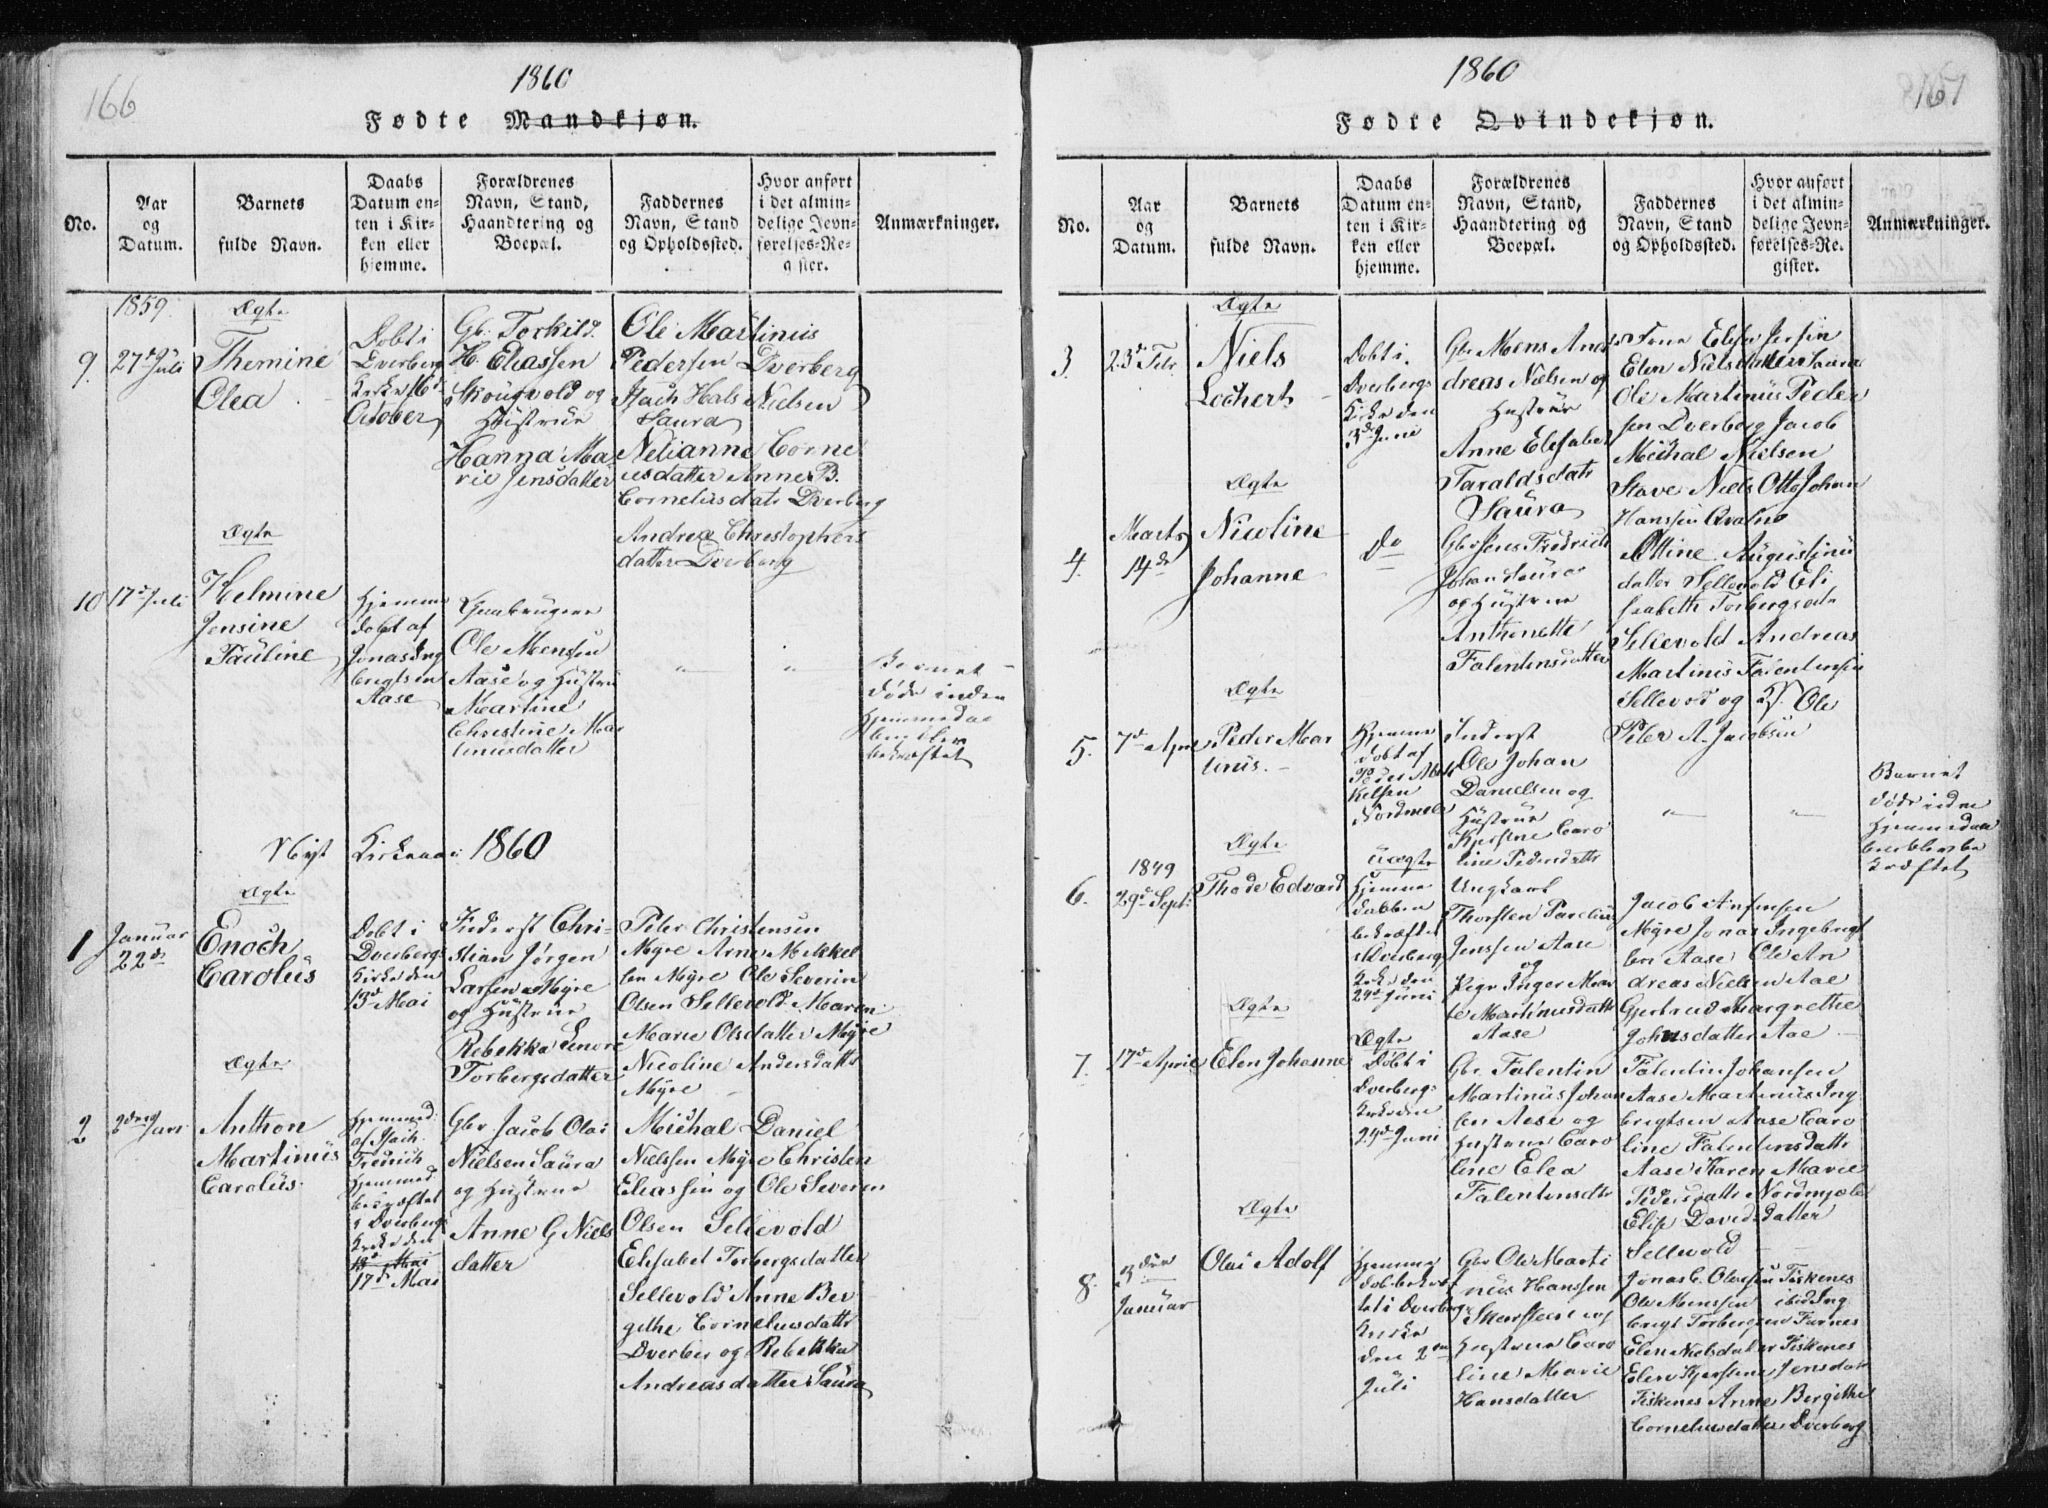 166
1860
Fødte Mandkjøn.
No.
Aar og Datum.
Barnets fulde Navn.
Daabs Datum enten i Kirken eller hjemme.
Forældrenes Navn, Stand, Haandtering og Boepæl.
Faddernes Navn, Stand og Opholdssted.
Hvor anført i det almindelige Jevnførelses-Register.
Anmærkninger.
1859
Ægte
9. 27d Juli
Themine
Olea
Dobt i
Dverberg
Kirke 16d
October
Gb. Torkild
H. Eliassen
Skougvold og
Hustrue
Hanna Ma
rie Jensdatter
Ole Martinus
Pedersen Dverberg
Isach Hals Nielsen
Saura
Nelianne Corne
liusdatter Anne B.
Corneliusdatr Dverberg
Andrea Christophers
datter Dverberg
Ægte
10 17d Juli
Helmine
Jensine
Pauline
Hjemme
dobt af
Jonas Ing
brigtsen
Aase
Gaabruger
Ole Monssen
Aase og Hustru
Martine
Christine Mar
tinusdatter
"
"
Barnet
døde inden
Hjemmedaa
ben blev
bekræftet
Nyt Kirkeaar 1860
Ægte
1 Januar
22de
Enoch
Carolus
Dobt i
Dverbergs
Kirke den
13d Mai
Inderst Chri-
stian Jørgen
Larsen Myre
og Hustrue
Rebekka Lenore
Torbergsdatter
Peter Christensen
Myre Arne Mekkel
sen Myre Ole Severin
Olsen Sellevold Maren
Marie Olsdatter Myre
Nicoline Andersdatter
Myre
Ægte
2 2den Jan
Anthon
Martinus
Carolus
Hjemmed.
af Isach
Fredrich
Hjemmed
bekræftet
i Dverbergs
Kirke den
13 Mai
17d Mai
Gbr Jacob Olai
Nielsen Saura
og Hustrue
Anne G Niels
datter
Michal Daniel
Nielssen Myre Christen
Eliassen og Ole Severin
Olsen Sellevold
Elisabet Torbergsdatter
Sellevold Anne Ber
githe Corneliusdattr
Dverber og Rebekka
Andreasdatter Saura
167
1860
Fødte Qvindekjøn.
No.
Aar og Datum.
Barnets fulde Navn.
Daabs Datum enten i Kirken eller hjemme.
Forældrenes Navn, Stand, Haandtering og Boepæl.
Faddernes Navn, Stand og Opholdssted.
Hvor anført i det almindelige Jevnførelses-Register.
Anmærkninger.
Ægte
3. 23d Febr.
Niels
Lochert
Dobt i
Dverbergs
Kirke den
3d Juni
Gbr Mons An
dreas Nielsen og
Hustrue
Anne Elisabet
Taraldsdatr
Saura
Elen Nielsdatter Saura
Ole Martinus Peder
sen Dverberg Jacob
Michal Nielsen
Stave Niels Otto Johan
Hanssen
Ægte
4. Marts
14de
Nicoline
Johanne
do
Gbr Jens Fredrich
Johan Saura
og Hustrue
Anthonette
Falentinsdatter
Ottine Augustinu
datter Sellevold Eli
saabeth Torbergsdtr
Sellevold Andreas
Martinus Falentinsen
Sellevod og Ole
Peter A. Jacobsen
Ægte
5. 7d April
Peder Mar
tinus.
Hjemme
dobt af
Peder Mek
kelsen
Nordmele
Inderst
Ole Johan
Danielsen og
Hustrue
Kjerstine Caro
line Pedersdattr
"
"
Barnet
døde inden
Hjemmedaa
ben blev be
kræftet
Ægte
6. 1849
29d Sept.
Thode Edvard
Uægte
Hjemme
daaben
bekræftet
i Dverbergs
Kirke den
24d Juni
Ungkarl
Thorsten Parelius
Jenssen Aase
og
Pige Inger Mar
te Martinusdattr
Aase
Jacob Anfinsen
Myre Jonas Ingebrigt
sen Aase Ole An
dreas Nielsen Aae
Gjertrud Margrethe
Johnsdatter Aae
Ægte
7. 17d April
Elen Johanne
Ægte
Døbt i
Dverbergs
Kirke den
24d Juni
Gbr. Falentin
Martinus Johan
sen Aase og
Hustrue Caro
line Elea
Falentinsdtr
Falentin Johansen
Aase Martinus Ing
brigtsen Aase Caro
line Falentinsdattr
Aase Karen Marie
Pedersdattr Nordmjele
Elise Davidsdatter
Sellevold
Ægte
8. 3den
Januar
Olai Adolf
Hjemme
dobt bekræf
tet i Dverbergs
Kirke
den 2den
Juli
Gbr Ole Marti
nus Hanssen
Skarsteen og
Hustrue Caro
line Marie
Hansdatter
Jonas C. Olaisen Fiskenes
Ole Monssen ibid Ing
brigt Torbergsen
Elen Nielsdatter Fiskenes
Elen Kjerstine Jensdatr
Fiskenes Anne Bergithe
Corneliusdatter Dverberg